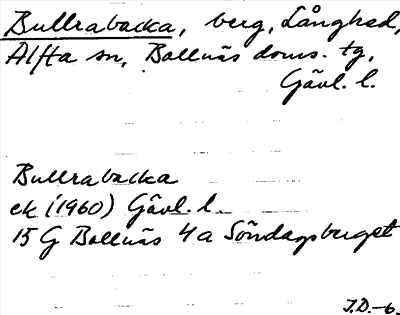 Bullrabacka, berg, Långhed,
Alfta sn, Bollnäs doms. tg,
Gävl. l.
Bullrabacka
ek (1960) Gävl. l.
15 G Bollnäs 4a Söndagsberget
J.D.-6.